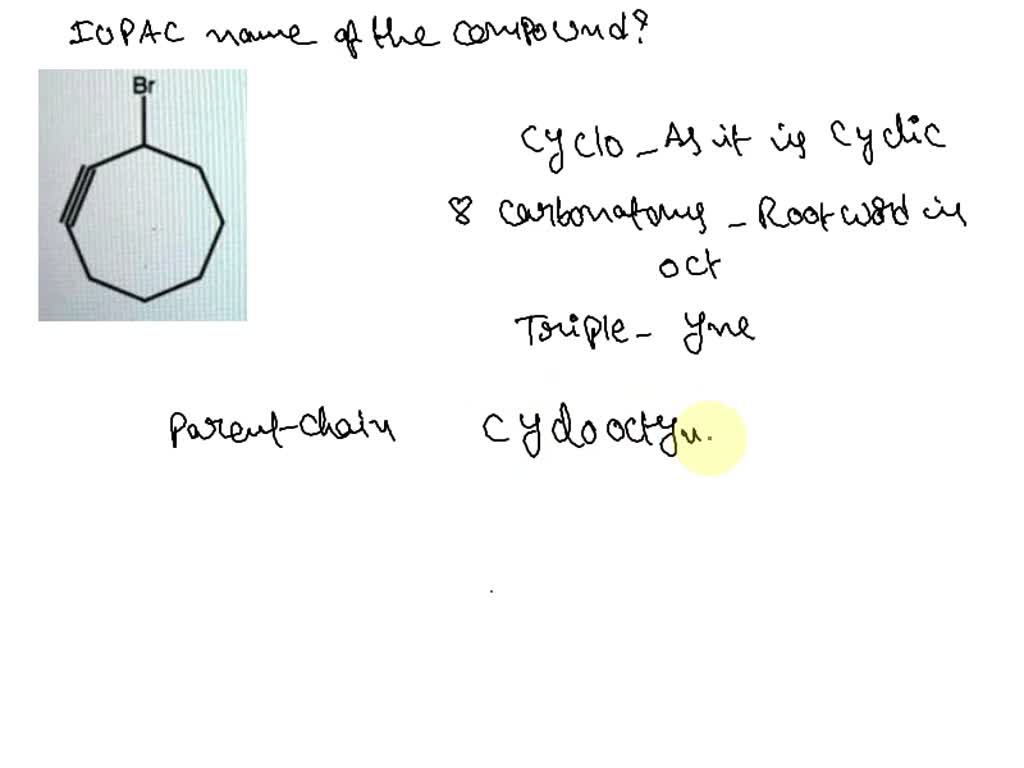 IUPAC name of the compound?
Br
Cyclo - As it is cyclic
8 carbonatoms - Root word is
oct
Triple - yne
Parent-chain cyclooctyn.